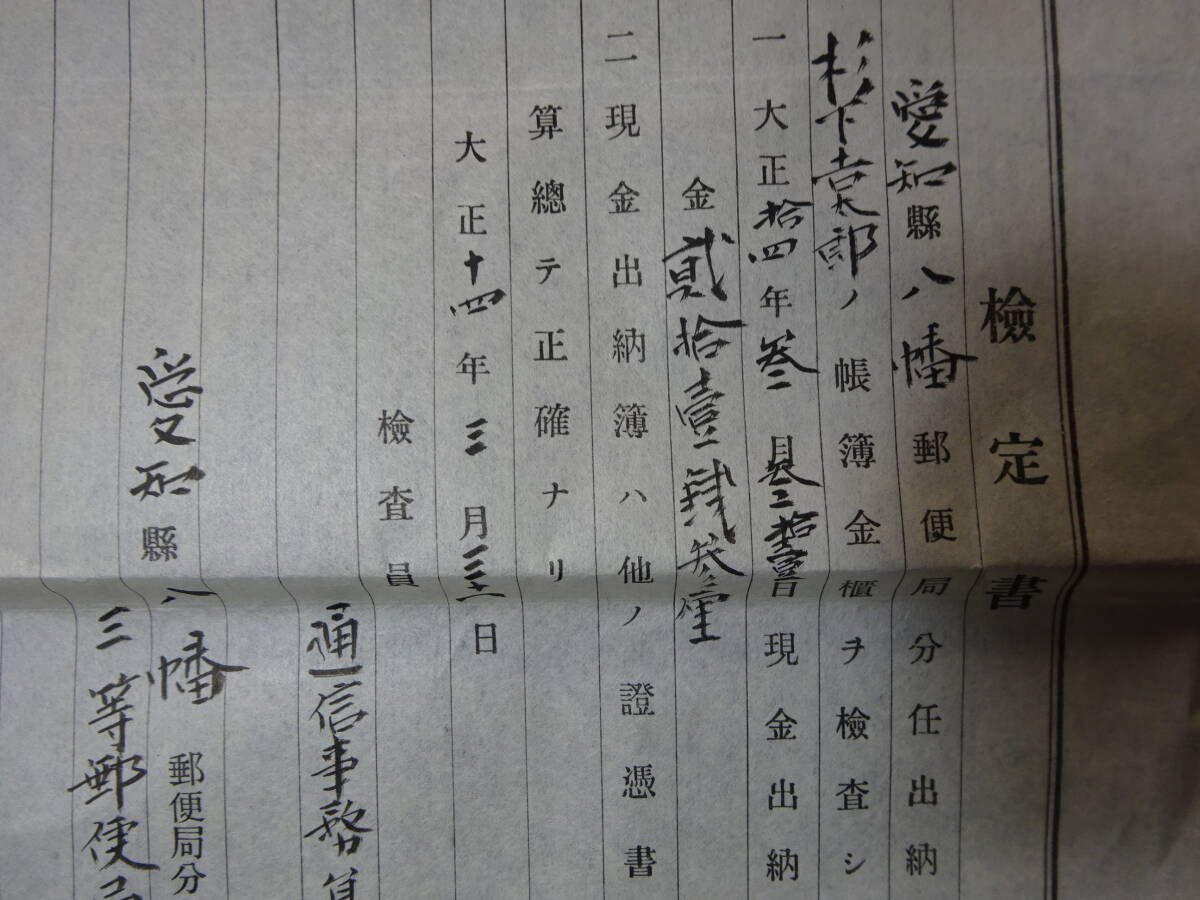 檢定書
愛知縣八幡郵便局分任出納
杉下吉太郎ノ帳簿金櫃ヲ檢査シ
一大正拾四年叁月叁拾壹日現金出納
金貳拾壹肆叁壹
二現金出納簿ハ他ノ證憑書
算總テ正確ナリ
大正十四年三月三十一日
檢査員
通信事務員
愛知縣八幡郵便局分
三等郵便局